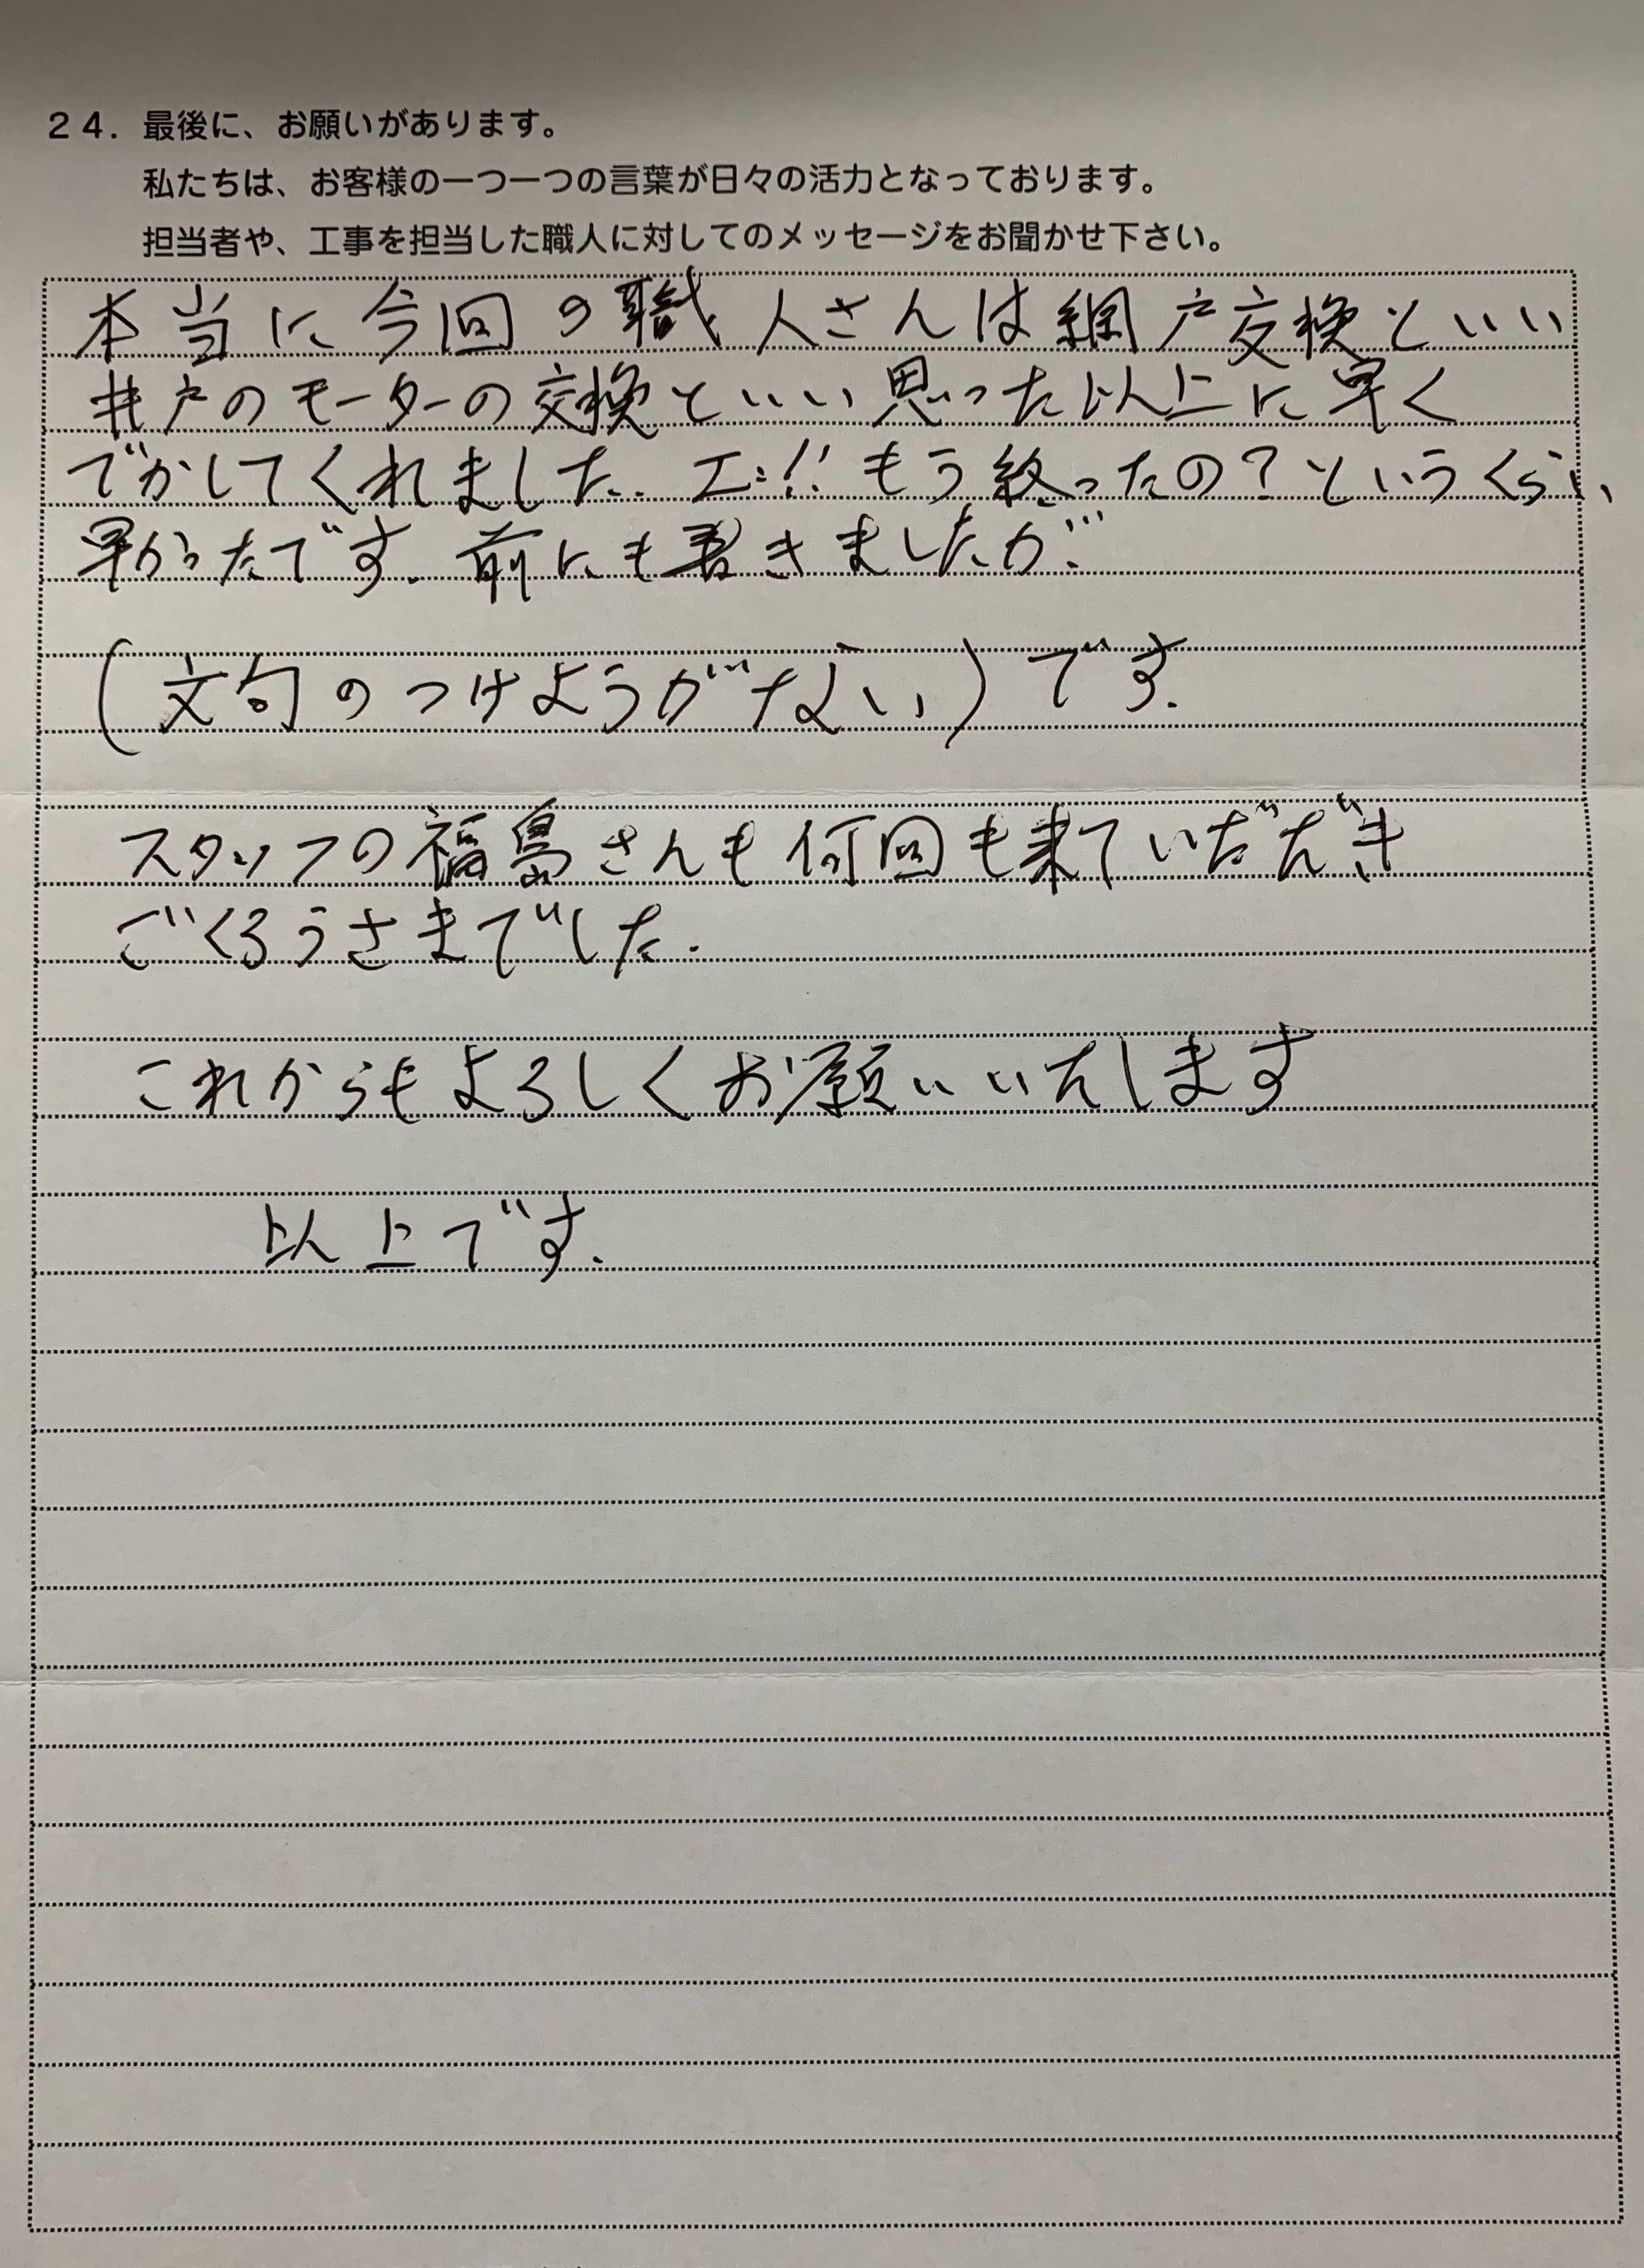 24．最後に、お願いがあります。
私たちは、お客様の一つ一つの言葉が日々の活力となっております。
担当者や、工事を担当した職人に対してのメッセージをお聞かせ下さい。
本当に今回の職人さんは網戸交換といい
井戸のモーターの交換といい思った以上に早く
でかしてくれました。エ!! もう終ったの？というくらい
早かったです。前にも書きましたが
(文句のつけようがない)です。
スタッフの福島さんも何回も来ていだだき
ごくろうさまでした。
これからもよろしくお願いいたします
以上です。